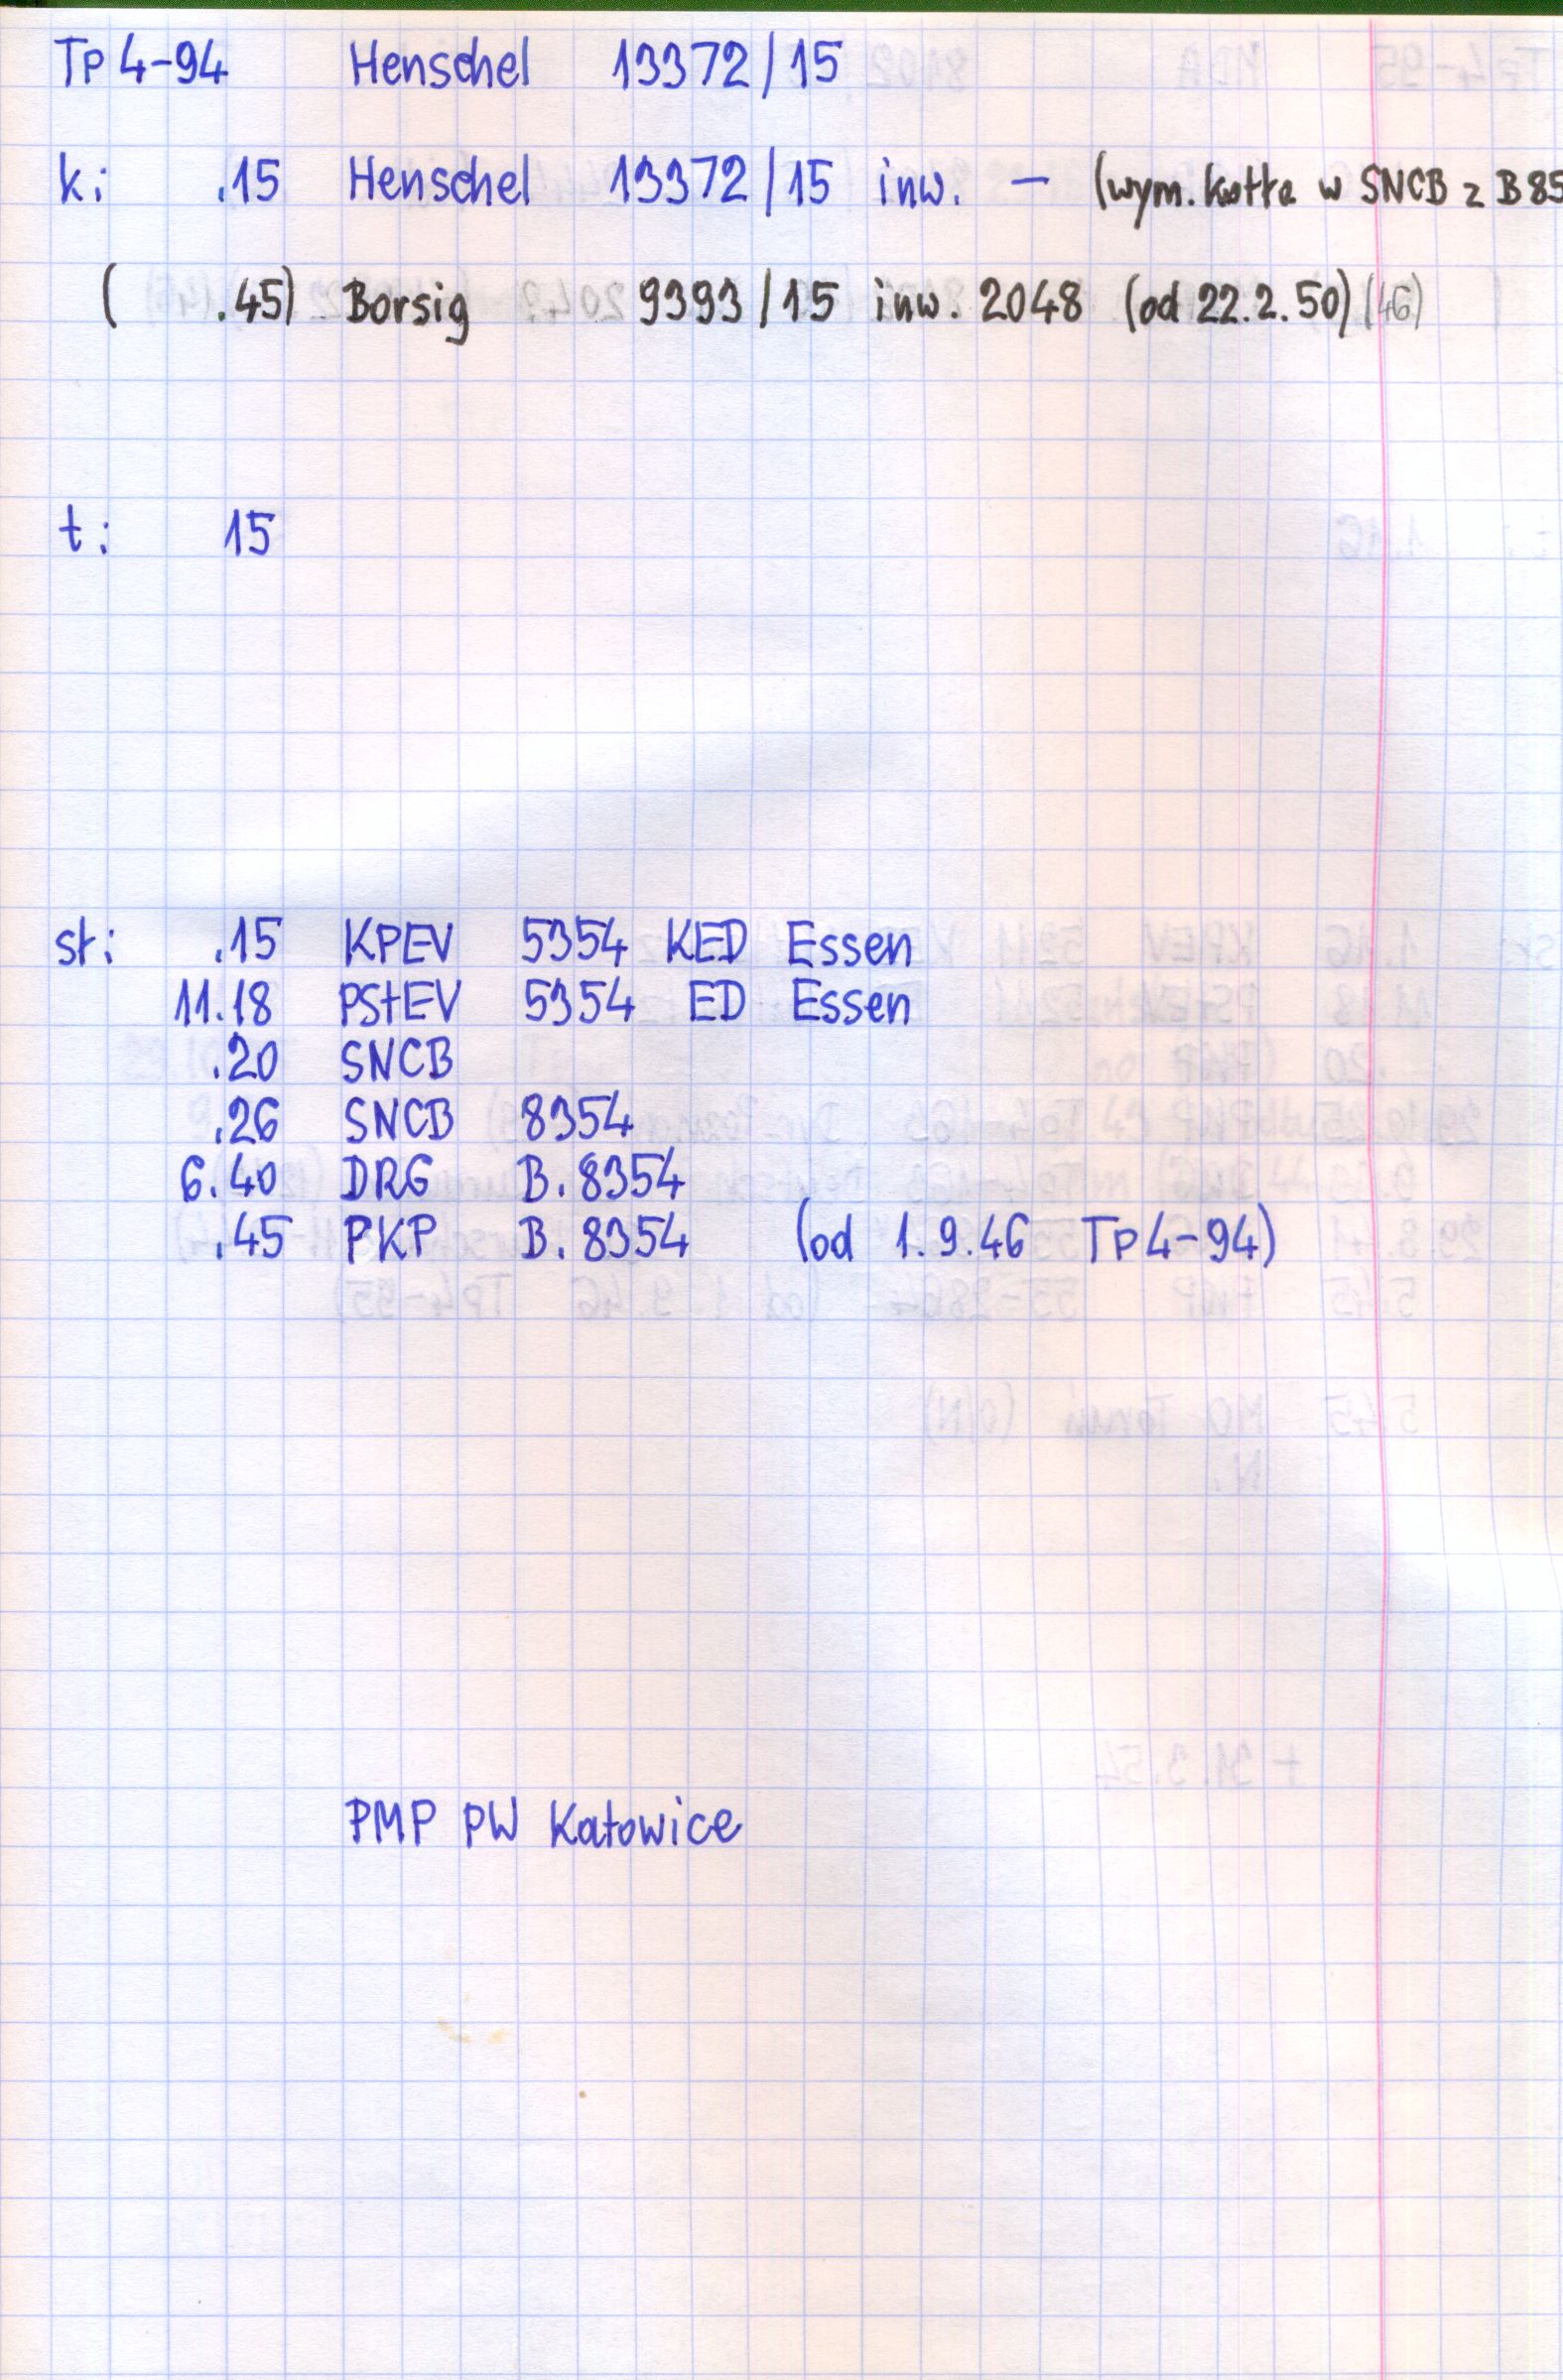 Tp4-94 Henschel 13372/15
k: .15 Henschel 13372/15 inw. – (wym. kotła w SNCB z B85
( .45) Borsig 9393/15 inw. 2048 (od 22.2.50) (46)
t: 15
st: .15 KPEV 5354 KED Essen
11.18 PStEV 5354 ED Essen
.20 SNCB
.26 SNCB 8354
6.40 DRG B.8354
.45 PKP B.8354 (od 1.9.46 Tp4-94)
PMP PW Katowice